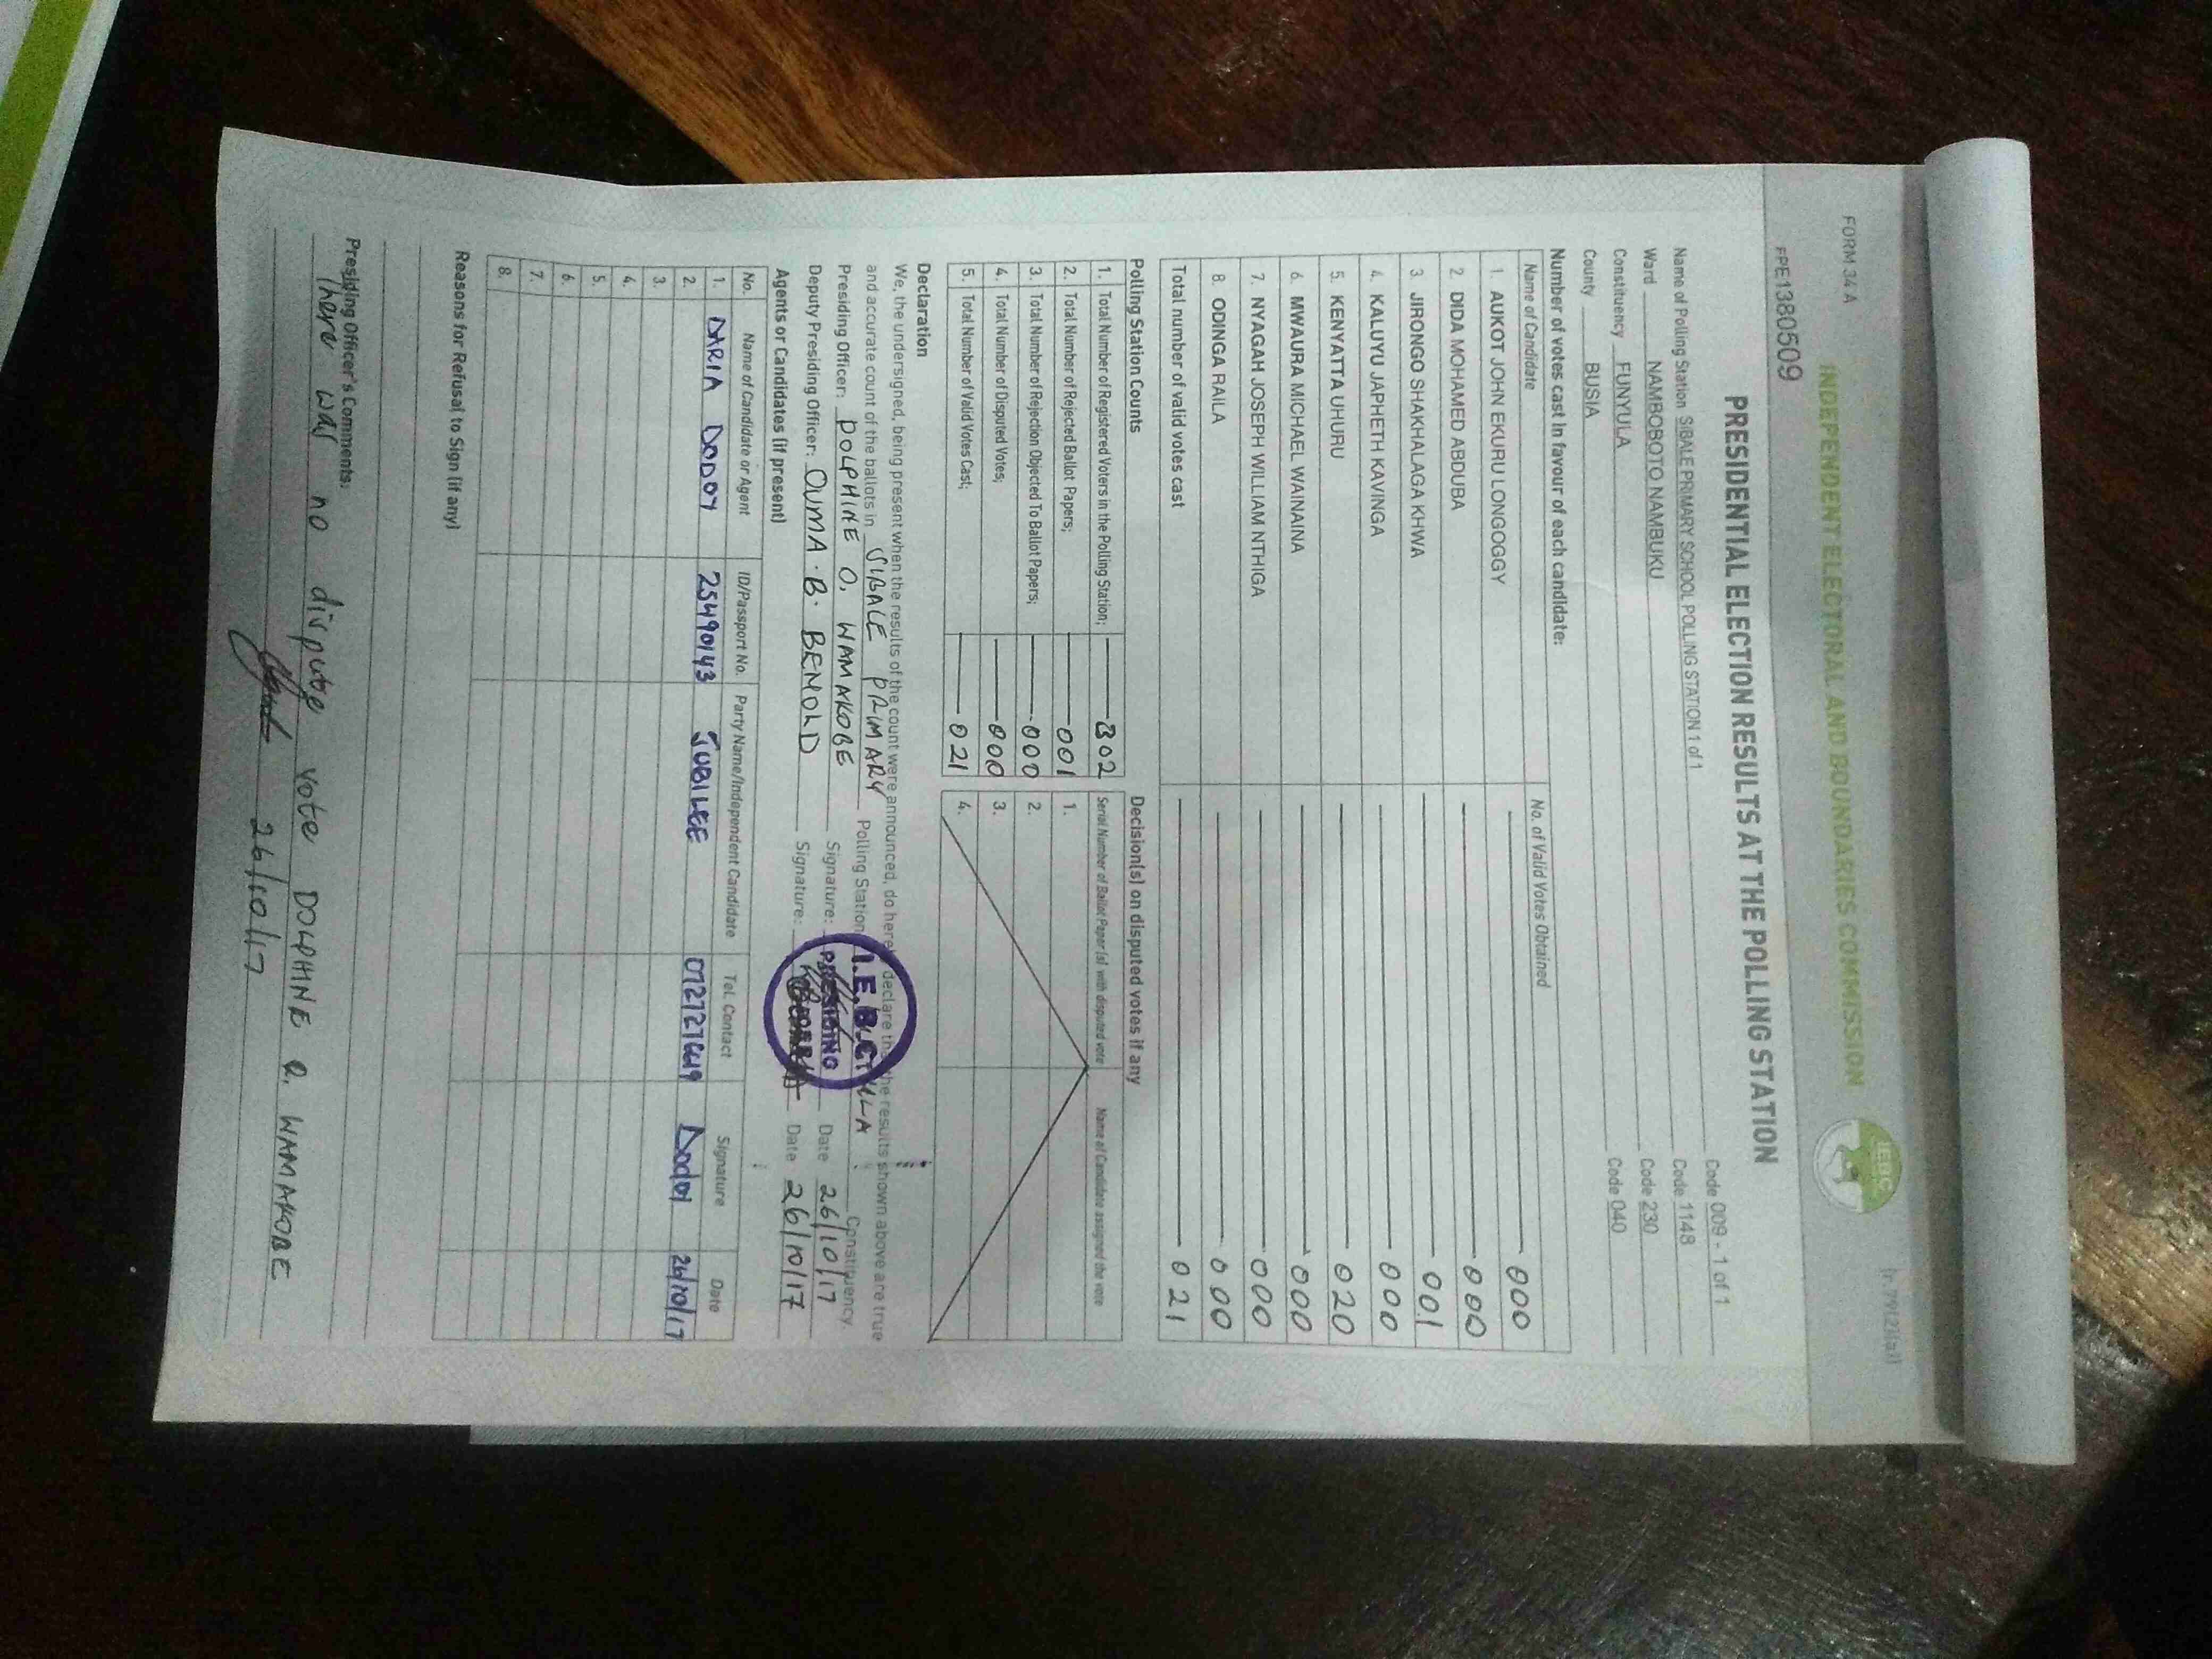 FORM 34 A
(r.79(2)(a))
INDEPENDENT ELECTORAL AND BOUNDARIES COMMISSION
IEBC
FPE1380509
PRESIDENTIAL ELECTION RESULTS AT THE POLLING STATION
Name of Polling Station SIBALE PRIMARY SCHOOL POLLING STATION 1 of 1 Code 009 - 1 of 1
Ward NAMBOBOTO NAMBUKU Code 1148
Constituency FUNYULA Code 230
County BUSIA Code 040
Number of votes cast in favour of each candidate:
Name of Candidate No. of Valid Votes Obtained
1. AUKOT JOHN EKURU LONGOGGY 000
2. DIDA MOHAMED ABDUBA 000
3. JIRONGO SHAKHALAGA KHWA 001
4. KALUYU JAPHETH KAVINGA 000
5. KENYATTA UHURU 020
6. MWAURA MICHAEL WAINAINA 000
7. NYAGAH JOSEPH WILLIAM NTHIGA 000
8. ODINGA RAILA 000
Total number of valid votes cast 021
Polling Station Counts
1. Total Number of Registered Voters in the Polling Station; 302
2. Total Number of Rejected Ballot Papers; 001
3. Total Number of Rejection Objected To Ballot Papers; 000
4. Total Number of Disputed Votes; 000
5. Total Number of Valid Votes Cast; 021
Decision(s) on disputed votes if any
Serial Number of Ballot Paper (s) with disputed vote Name of Candidate assigned the vote
1.
2.
3.
4.
Declaration
We, the undersigned, being present when the results of the count were announced, do hereby declare that the results shown above are true
and accurate count of the ballots in SIBALE PRIMARY Polling Station Constituency.
Presiding Officer: DOLPHINE O. WAMAKOBE Signature: Date 26/10/17
Deputy Presiding Officer: OUMA . B. BENOLD Signature: Date 26/10/17
I.E.B.C
PRESIDING
Agents or Candidates (if present)
No. Name of Candidate or Agent ID/Passport No. Party Name/Independent Candidate Tel. Contact Signature Date
1. DARIA DODOY 25490143 JUBILEE Dodoi 26/10/17
2.
3.
4.
5.
6.
7.
8.
Reasons for Refusal to Sign (if any)
Presiding Officer's Comments:
There was no dispute vote DOLPHINE O. WAMAKOBE
26/10/17